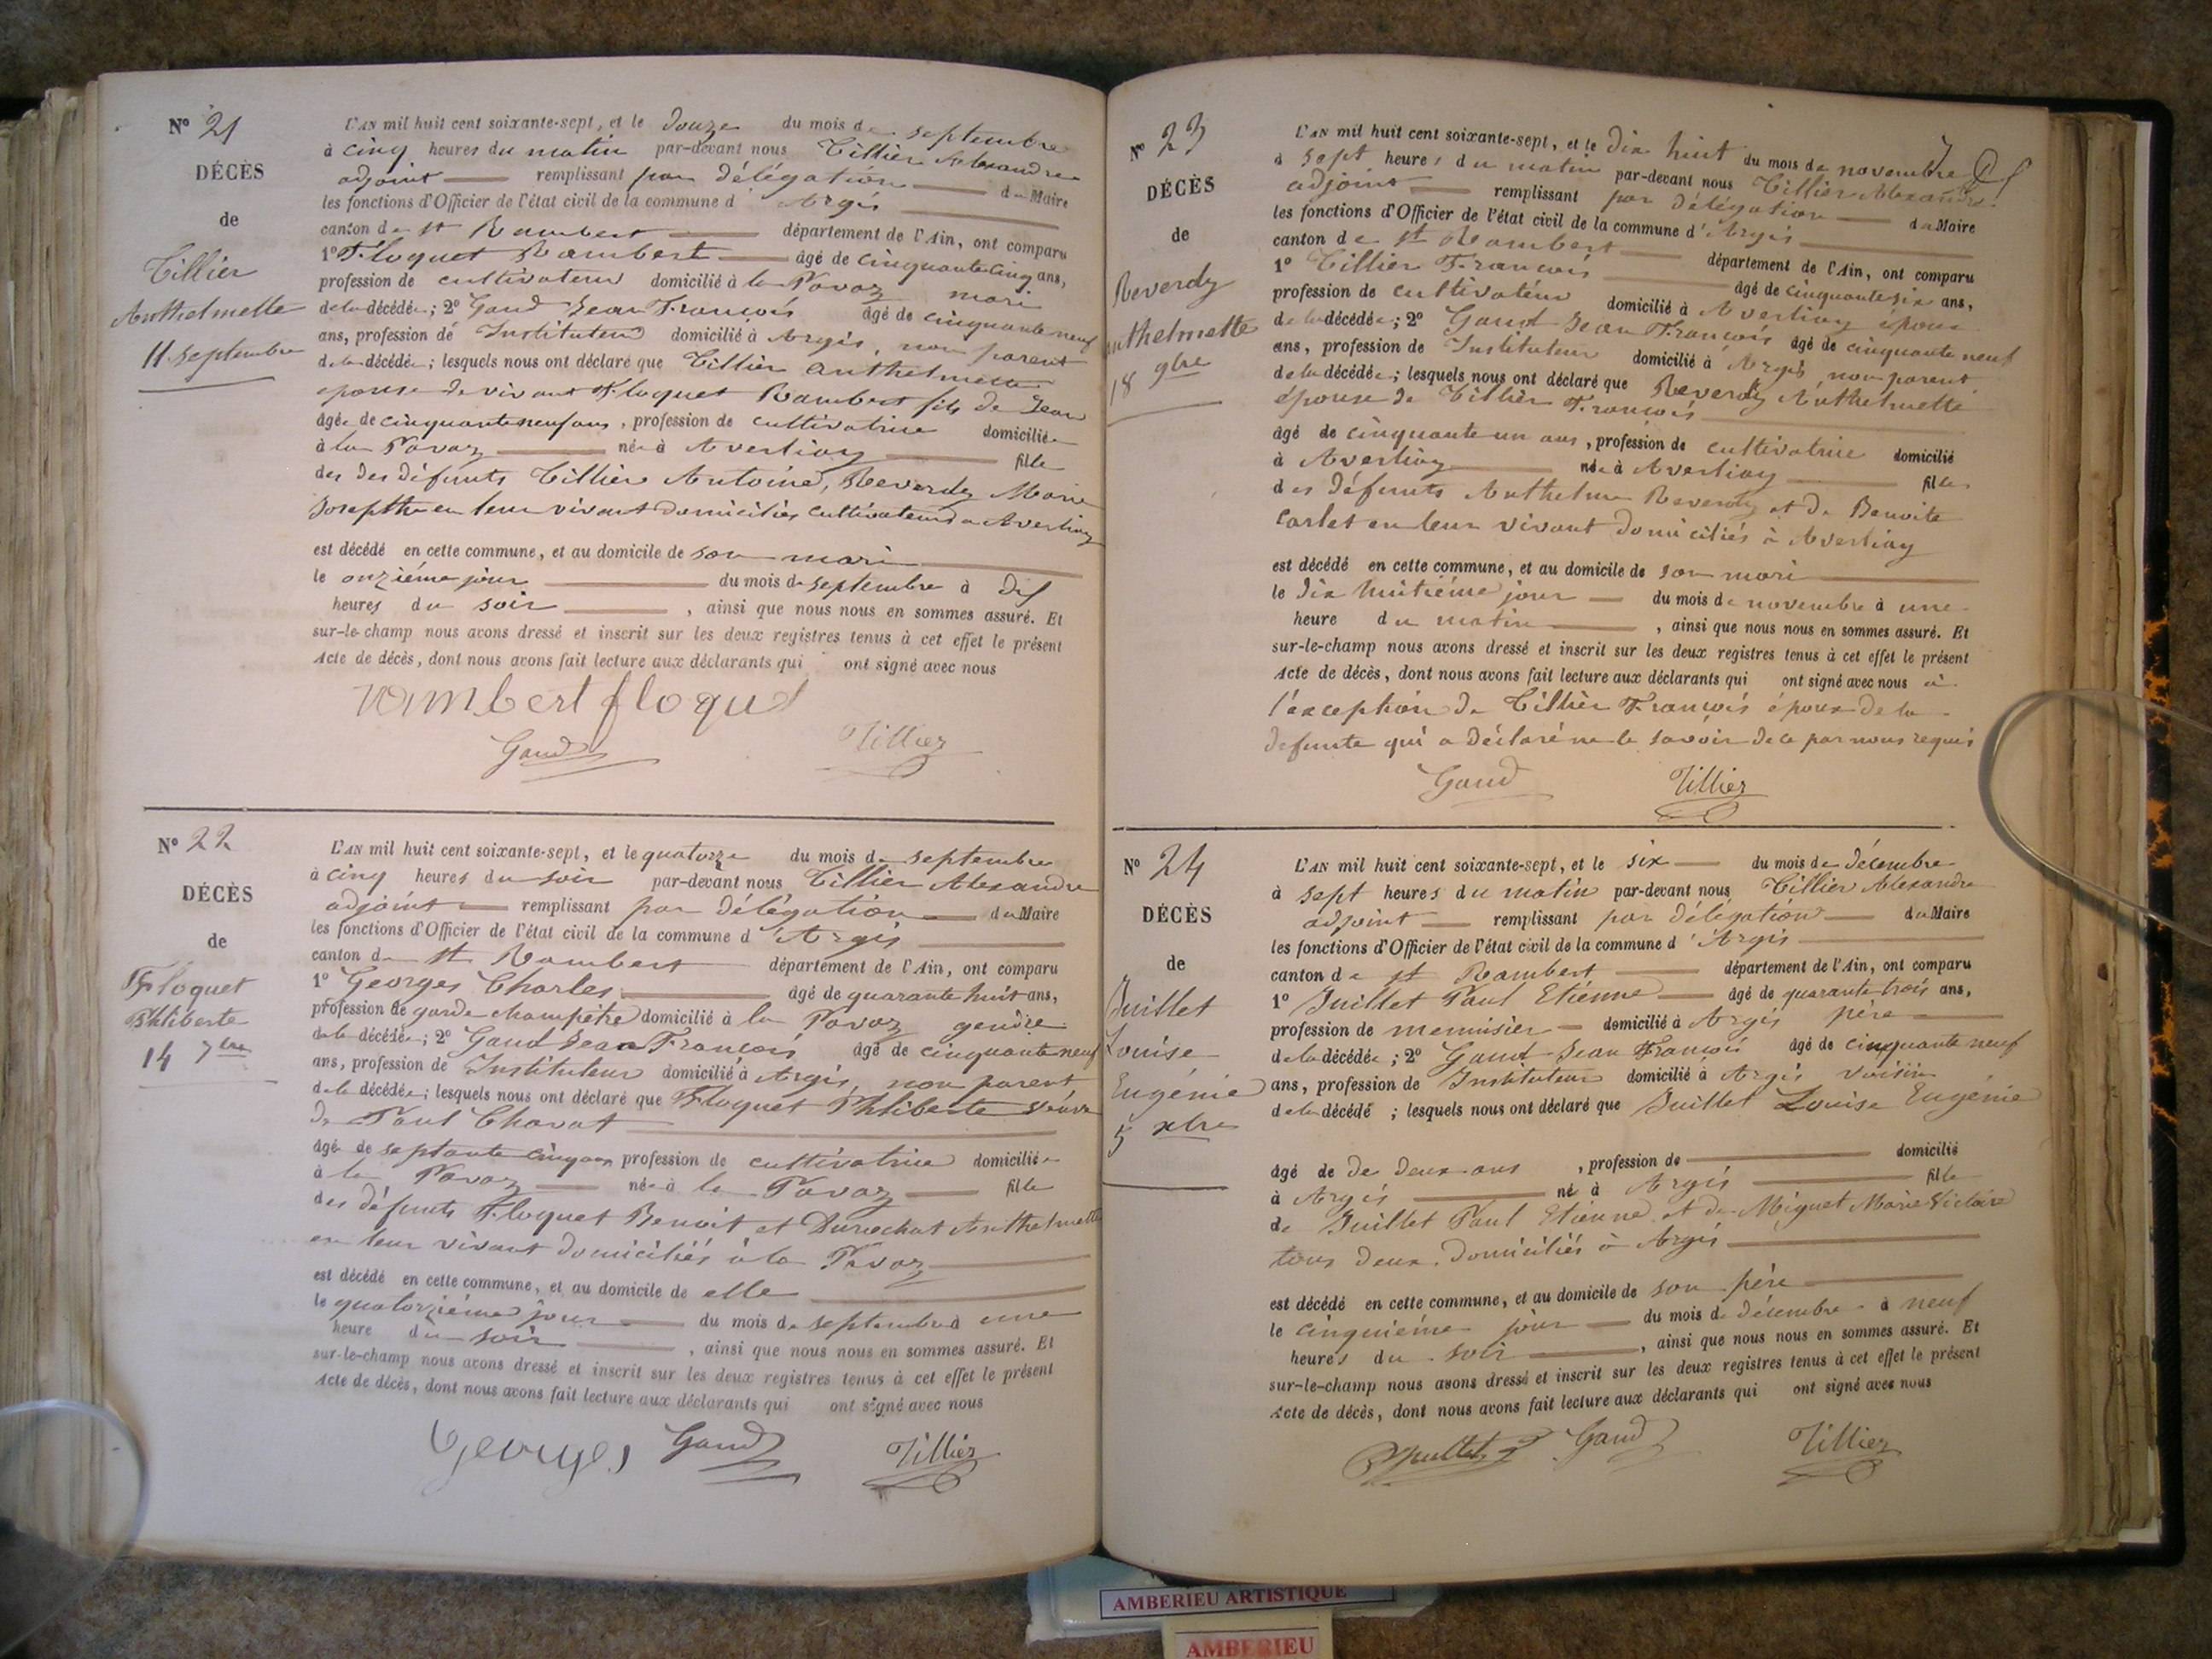 Nº 21
DÉCÈS
de
Tillier
Anthelmette
11 septembre
L'AN mil huit cent soixante-sept, et le douze du mois de septembre
à cinq heures du matin par-devant nous Tillier Alexandre
adjoint remplissant par délégation du Maire
les fonctions d'Officier de l'état civil de la commune d'Argis
canton de St Rambert département de l'Ain, ont comparu
1º Floquet Rambert âgé de cinquante cinq ans,
profession de cultivateur domicilié à la Pavaz mari
de la décédée; 2º Gaud Jean François âgé de cinquante neuf
ans, profession de Instituteur domicilié à Argis, non parent
de la décédée; lesquels nous ont déclaré que Tillier Anthelmette
épouse de vivant Floquet Rambert fils de Jean
âgée de cinquante neuf ans, profession de cultivatrice domiciliée
à la Pavaz née à Averliaz fille
des des défunts Tillier Antoine, Reverdy Marie
Josephte en leur vivant domiciliés cultivateurs à Averliaz
est décédé en cette commune, et au domicile de son mari
le onzième jour du mois de septembre à dix
heures du soir, ainsi que nous nous en sommes assuré. Et
sur-le-champ nous avons dressé et inscrit sur les deux registres tenus à cet effet le présent
Acte de décès, dont nous avons fait lecture aux déclarants qui ont signé avec nous
rambert floquet
Gaud Tillier
Nº 22
DÉCÈS
de
Floquet
Philiberte
14 7bre
L'AN mil huit cent soixante-sept, et le quatorze du mois de septembre
à cinq heures du soir par-devant nous Tillier Alexandre
adjoint remplissant par délégation du Maire
les fonctions d'Officier de l'état civil de la commune d'Argis
canton de St Rambert département de l'Ain, ont comparu
1º Georges Charles âgé de quarante huit ans,
profession de garde champêtre domicilié à la Pavaz gendre
de la décédée; 2º Gaud Jean François âgé de cinquante neuf
ans, profession de Instituteur domicilié à Argis, non parent
de la décédée; lesquels nous ont déclaré que Floquet Philiberte veuve
de Paul Chavat
âgée de septante cinq ans profession de cultivatrice domiciliée
à la Pavaz née à la Pavaz fille
des défunts Floquet Benoit et Durochat Anthelmette
en leur vivant domiciliés à la Pavaz
est décédé en cette commune, et au domicile de elle
le quatorzième jour du mois de septembre à une
heure du soir, ainsi que nous nous en sommes assuré. Et
sur-le-champ nous avons dressé et inscrit sur les deux registres tenus à cet effet le présent
Acte de décès, dont nous avons fait lecture aux déclarants qui ont signé avec nous
Georges Gaud Tillier
Nº 23
DÉCÈS
de
Reverdy
Anthelmette
18 9bre
L'AN mil huit cent soixante-sept, et le dix huit du mois de novembre
à sept heures du matin par-devant nous Tillier Alexandre
adjoint remplissant par délégation du Maire
les fonctions d'Officier de l'état civil de la commune d'Argis
canton de St Rambert département de l'Ain, ont comparu
1º Tillier François âgé de cinquante six ans,
profession de cultivateur domicilié à Averliaz époux
de la décédée; 2º Gaud Jean François âgé de cinquante neuf
ans, profession de Instituteur domicilié à Argis non parent
de la décédée; lesquels nous ont déclaré que Reverdy Anthelmette
épouse de Tillier François
âgé de cinquante un ans, profession de cultivatrice domicilié
à Averliaz née à Averliaz fille
des défunts Anthelme Reverdy et de Benoite
Carlet en leur vivant domiciliés à Averliaz
est décédé en cette commune, et au domicile de son mari
le dix huitième jour du mois de novembre à une
heure du matin, ainsi que nous nous en sommes assuré. Et
sur-le-champ nous avons dressé et inscrit sur les deux registres tenus à cet effet le présent
Acte de décès, dont nous avons fait lecture aux déclarants qui ont signé avec nous à
l'exception de Tillier François époux de la
defunte qui a déclaré ne le savoir de ce par nous requis
Gaud Tillier
Nº 24
DÉCÈS
de
Juillet
Louise
Eugénie
5 xbre
L'AN mil huit cent soixante-sept, et le six du mois de décembre
à sept heures du matin par-devant nous Tillier Alexandre
adjoint remplissant par délégation du Maire
les fonctions d'Officier de l'état civil de la commune d'Argis
canton de St Rambert département de l'Ain, ont comparu
1º Juillet Paul Etienne âgé de quarante trois ans,
profession de menuisier domicilié à Argis père
de la décédée; 2º Gaud Jean François âgé de cinquante neuf
ans, profession de Instituteur domicilié à Argis voisin
de la décédé; lesquels nous ont déclaré que Juillet Louise Eugénie
âgé de de deux ans, profession de domicilié
à Argis né à Argis fille
de Juillet Paul Etienne et de Miguet Marie Victoire
tous deux domiciliés à Argis
est décédé en cette commune, et au domicile de son père
le cinquième jour du mois de décembre à neuf
heures du soir, ainsi que nous nous en sommes assuré. Et
sur-le-champ nous avons dressé et inscrit sur les deux registres tenus à cet effet le présent
Acte de décès, dont nous avons fait lecture aux déclarants qui ont signé avec nous
Juillet Gaud Tillier
AMBERIEU ARTISTIQUE
AMBERIEU